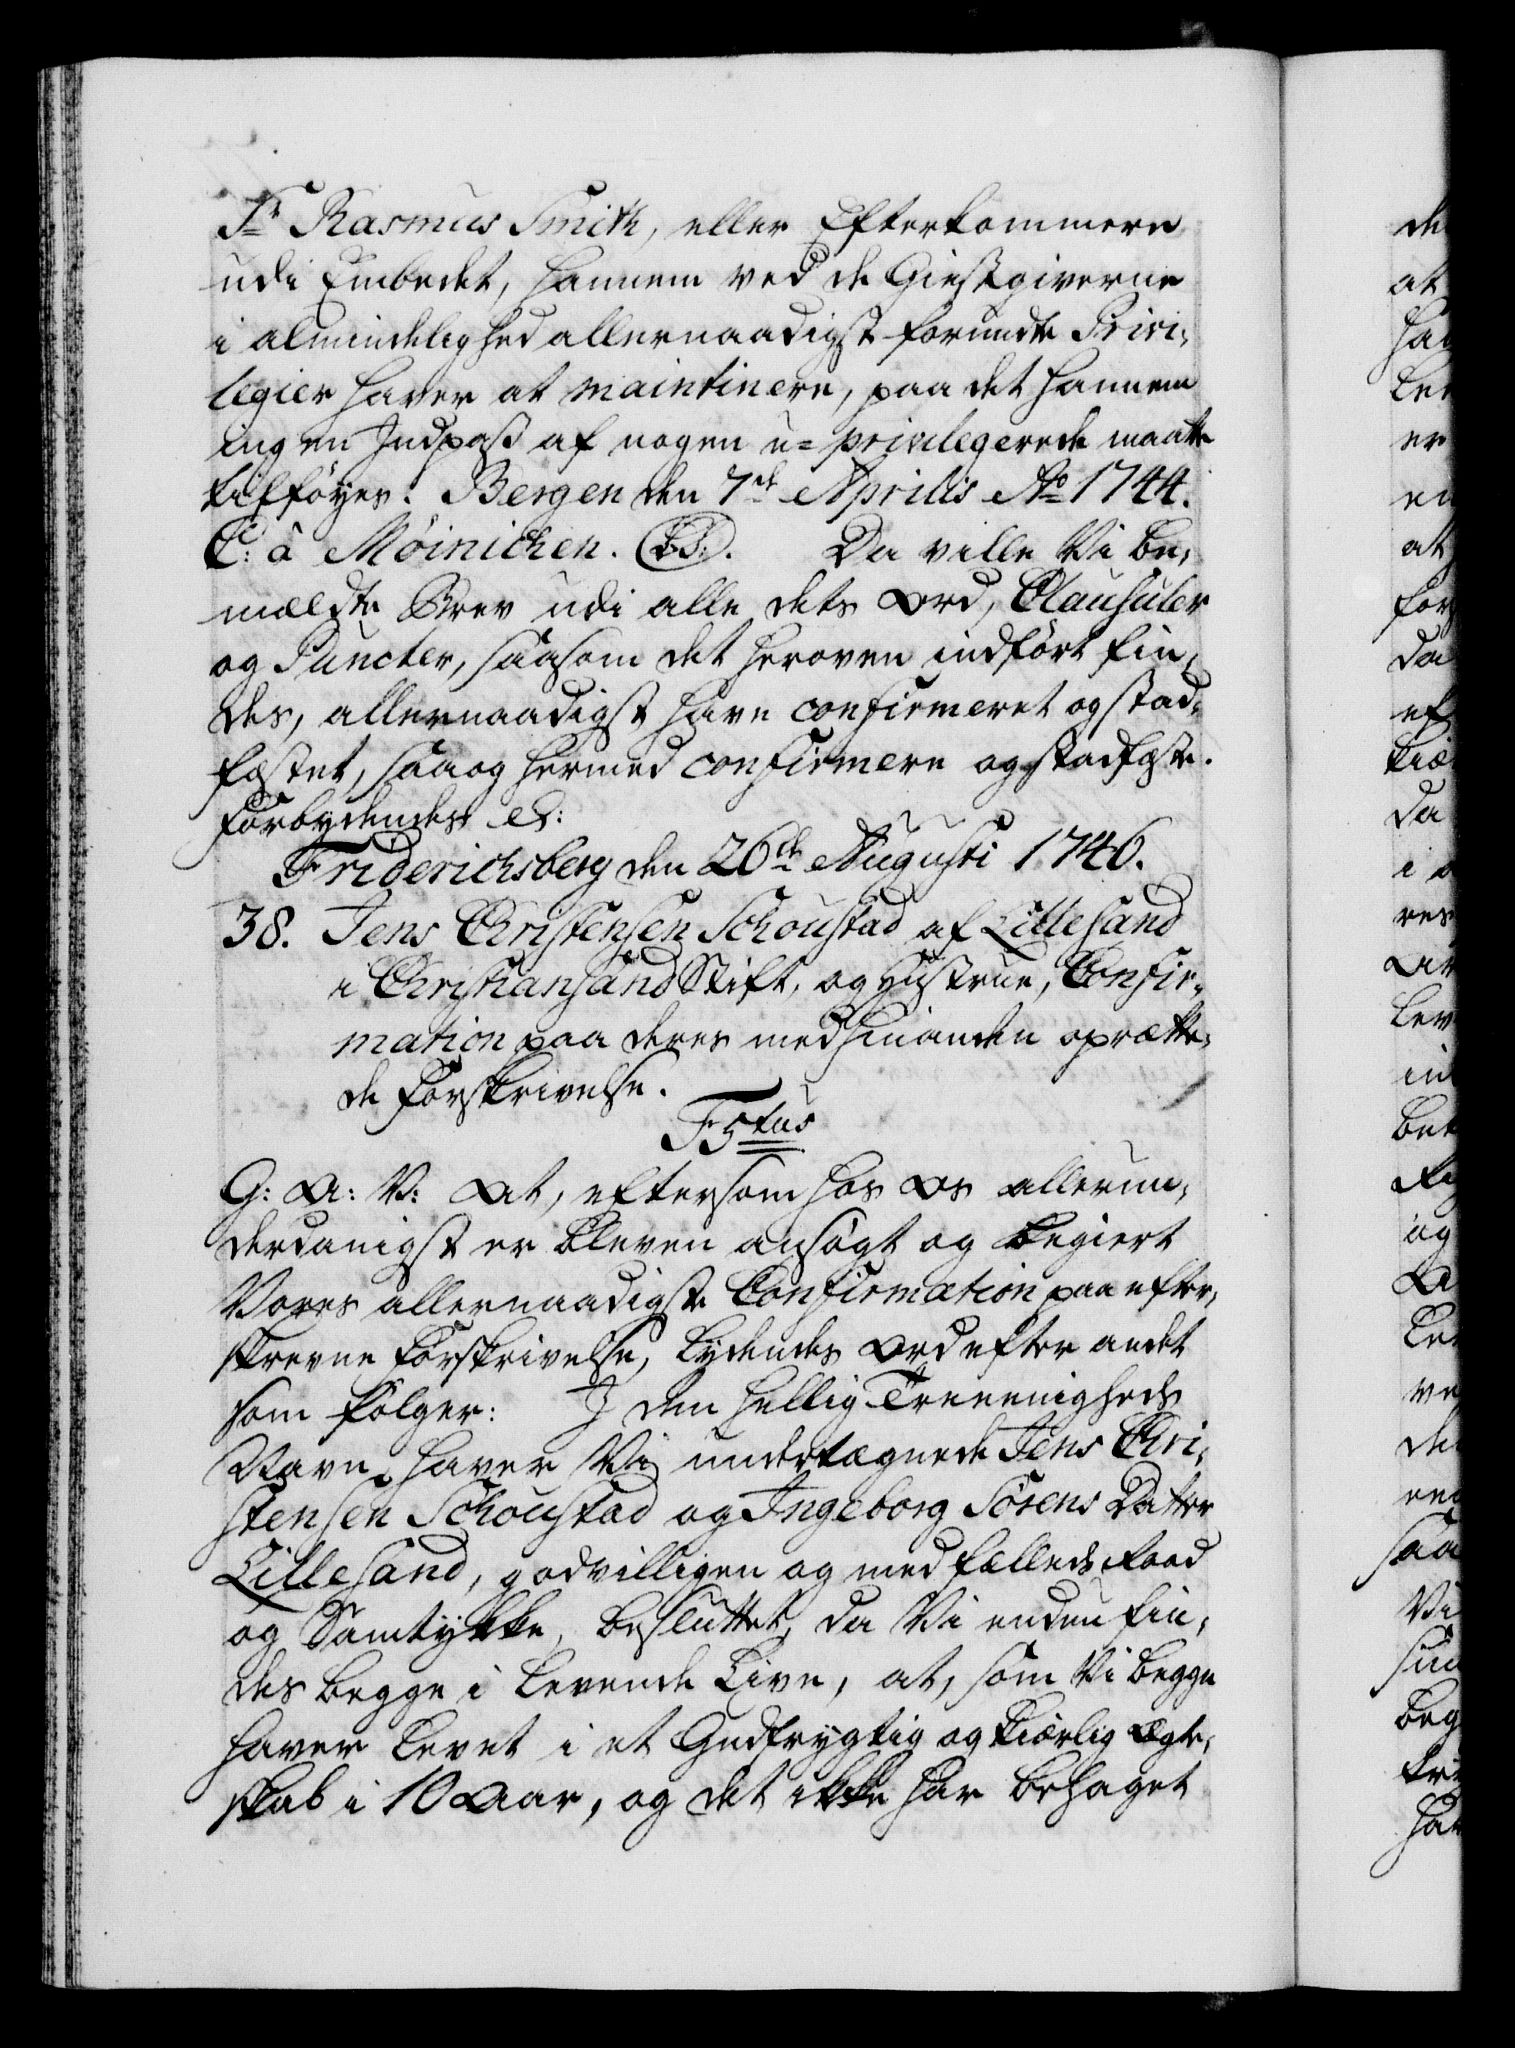 Sr Rasmus Smith, eller Efterkommere
udi Embedet, hannem ved de Giestgiverne
i almindelighed allernaadigst forundte Privi-
legier haver at maintinere, paa det hannem
ingen Indpass af nogen u-privilegerede maatte
tilføyes. Bergen den 7de Aprilis Ao 1744.
C: â Möinichen. (L.S.). Da ville Vi be-
mældte Brev udi alle dets Ord, Clausuler
og Puncter, saasom det heroven indført fin-
des, allernaadigst have confirmeret og stad-
fæstet, saa og hermed confirmere og stadfæste.
Forbydendes etc:
Friderichsberg den 26de Augusti 1746.
38. Jens Christensen Schoustad af Lillesand
i Christiansand Stift, og Hustrue, Confir-
mation paa deres med hinanden oprætte-
de Forskrivelse.
F5tus
G: A: V: At, eftersom hos Os allerun-
derdanigst er bleven ansøgt og begiert
Vores allernaadigste Confirmation paa efter-
skrevne Forskrivelse, lydendes Ord efter andet
som følger: J den hellig Treeenigheds
Navn haver Vi undertegnede Jens Chri-
stensen Schoustad og Ingeborg Sörens Datter
Lillesand, godvilligen og med fælleds Raad
og Samtykke, besluttet, da Vi endnu fin-
des begge i levende Live, at, som Vi begge
haver levet i et Gudfrygtig og kiærlig Ægte-
skab i 10 Aar, og det ikke har behaget